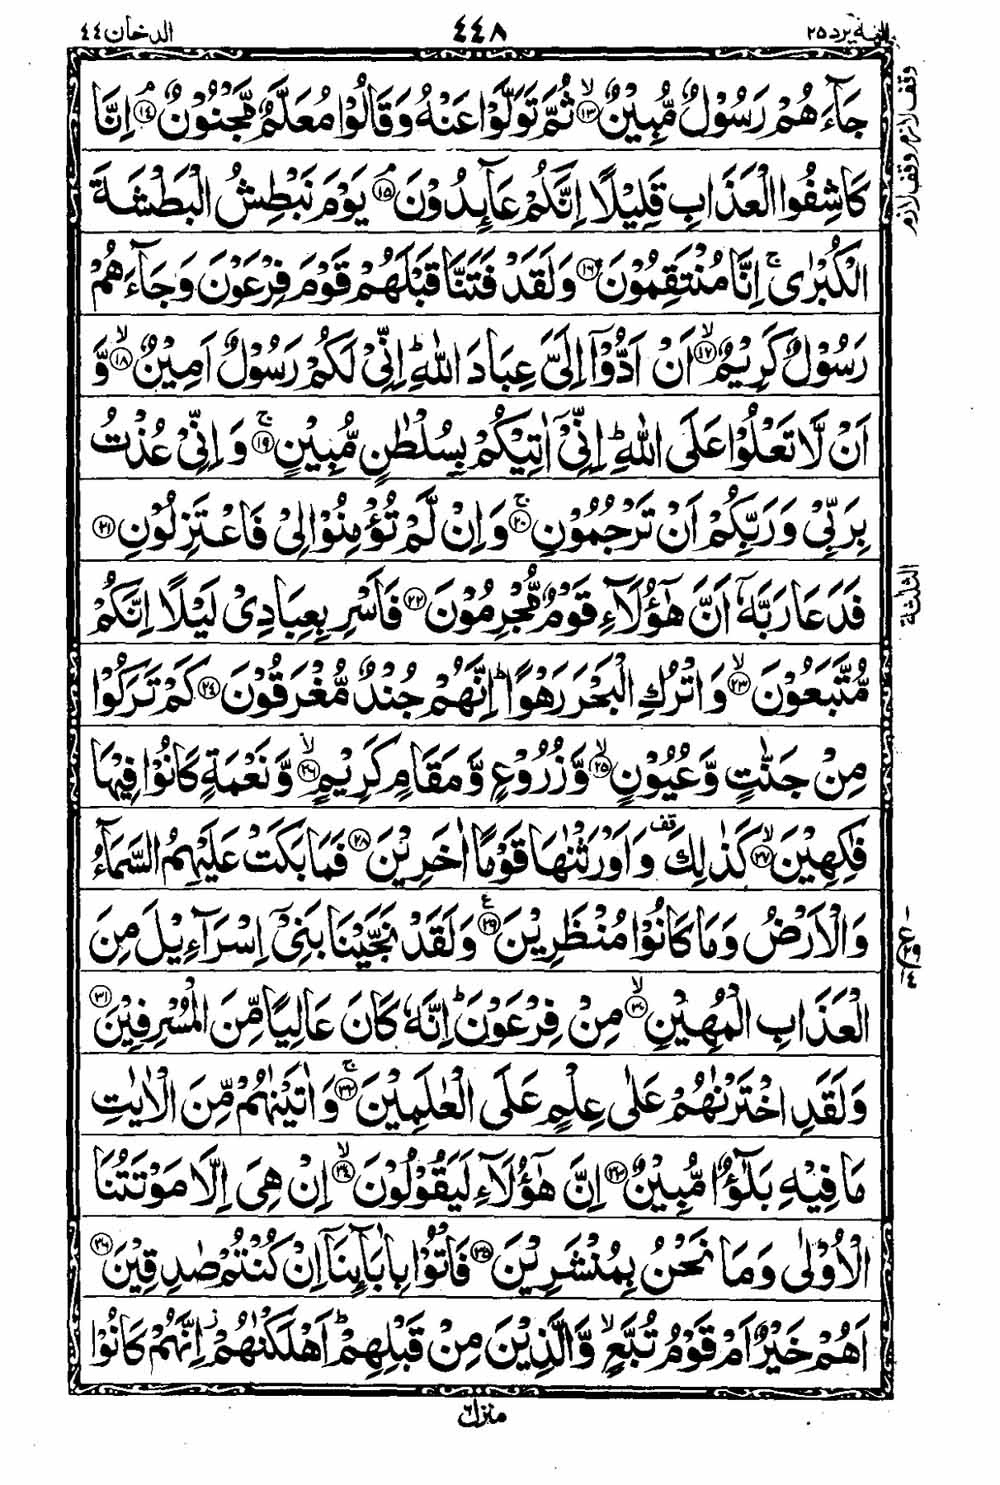 الدخان ٤٤
٤٤٨
اليه يرد ٢٥
جَآءَهُمْ رَسُوْلٌ مُّبِيْنٌ ۙ﴿۱۳﴾ ثُمَّ تَوَلَّوْا عَنْهُ وَقَالُوْا مُعَلَّمٌ مَّجْنُوْنٌ ۘ﴿۱۴﴾ اِنَّا
كَاشِفُوا الْعَذَابِ قَلِيْلًا اِنَّكُمْ عَآئِدُوْنَ ۘ﴿۱۵﴾ يَوْمَ نَبْطِشُ الْبَطْشَةَ
الْكُبْرٰى ۚ اِنَّا مُنْتَقِمُوْنَ ﴿۱۶﴾ وَلَقَدْ فَتَنَّا قَبْلَهُمْ قَوْمَ فِرْعَوْنَ وَجَآءَهُمْ
رَسُوْلٌ كَرِيْمٌ ۙ﴿۱۷﴾ اَنْ اَدُّوْٓا اِلَيَّ عِبَادَ اللّٰهِ ؕ اِنِّيْ لَكُمْ رَسُوْلٌ اَمِيْنٌ ۙ﴿۱۸﴾ وَّ
اَنْ لَّا تَعْلُوْا عَلَى اللّٰهِ ؕ اِنِّيْٓ اٰتِيْكُمْ بِسُلْطٰنٍ مُّبِيْنٍ ۚ﴿۱۹﴾ وَاِنِّيْ عُذْتُ
بِرَبِّيْ وَرَبِّكُمْ اَنْ تَرْجُمُوْنِ ۚ﴿۲۰﴾ وَاِنْ لَّمْ تُؤْمِنُوْا لِيْ فَاعْتَزِلُوْنِ ﴿۲۱﴾
فَدَعَا رَبَّهٗٓ اَنَّ هٰٓؤُلَآءِ قَوْمٌ مُّجْرِمُوْنَ ﴿۲۲﴾ فَاَسْرِ بِعِبَادِيْ لَيْلًا اِنَّكُمْ
مُّتَّبَعُوْنَ ۙ﴿۲۳﴾ وَاتْرُكِ الْبَحْرَ رَهْوًا ؕ اِنَّهُمْ جُنْدٌ مُّغْرَقُوْنَ ﴿۲۴﴾ كَمْ تَرَكُوْا
مِنْ جَنّٰتٍ وَّعُيُوْنٍ ۙ﴿۲۵﴾ وَّزُرُوْعٍ وَّمَقَامٍ كَرِيْمٍ ۙ﴿۲۶﴾ وَّنَعْمَةٍ كَانُوْا فِيْهَا
فٰكِهِيْنَ ۙ﴿۲۷﴾ كَذٰلِكَ قف وَاَوْرَثْنٰهَا قَوْمًا اٰخَرِيْنَ ﴿۲۸﴾ فَمَا بَكَتْ عَلَيْهِمُ السَّمَآءُ
وَالْاَرْضُ وَمَا كَانُوْا مُنْظَرِيْنَ ع﴿۲۹﴾ وَلَقَدْ نَجَّيْنَا بَنِيْٓ اِسْرَآءِيْلَ مِنَ
الْعَذَابِ الْمُهِيْنِ ۙ﴿۳۰﴾ مِنْ فِرْعَوْنَ ؕ اِنَّهٗ كَانَ عَالِيًا مِّنَ الْمُسْرِفِيْنَ ﴿۳۱﴾
وَلَقَدِ اخْتَرْنٰهُمْ عَلٰى عِلْمٍ عَلَى الْعٰلَمِيْنَ ۚ﴿۳۲﴾ وَاٰتَيْنٰهُمْ مِّنَ الْاٰيٰتِ
مَا فِيْهِ بَلٰٓؤٌا مُّبِيْنٌ ﴿۳۳﴾ اِنَّ هٰٓؤُلَآءِ لَيَقُوْلُوْنَ ۙ﴿۳۴﴾ اِنْ هِيَ اِلَّا مَوْتَتُنَا
الْاُوْلٰى وَمَا نَحْنُ بِمُنْشَرِيْنَ ﴿۳۵﴾ فَاْتُوْا بِاٰبَآئِنَآ اِنْ كُنْتُمْ صٰدِقِيْنَ ﴿۳۶﴾
اَهُمْ خَيْرٌ اَمْ قَوْمُ تُبَّعٍ ۙ وَّالَّذِيْنَ مِنْ قَبْلِهِمْ ؕ اَهْلَكْنٰهُمْ ؗ اِنَّهُمْ كَانُوْا
وقف لازم وقف لازم
الثلثة
ع
منزل ٦